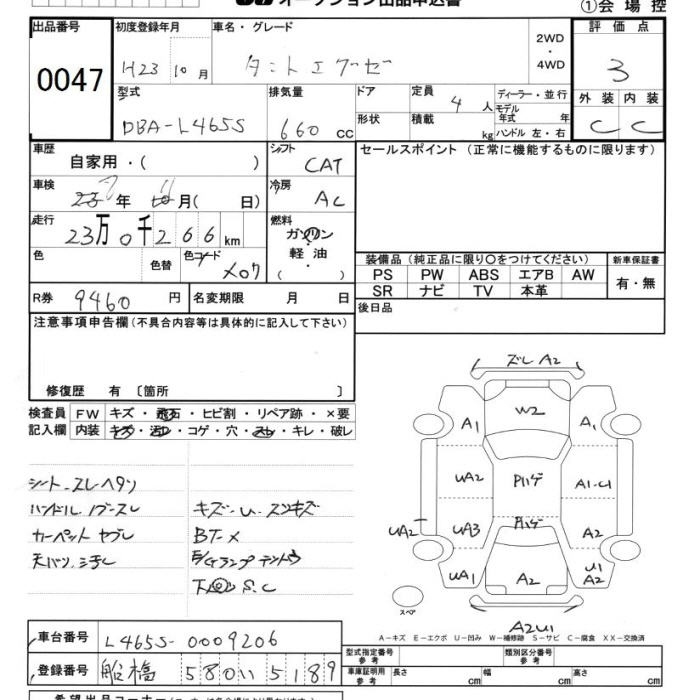 オークション出品申込書
①会場控
出品番号 初度登録年月 車名・グレード 評価点
0047 H23 10月 タントエグゼ 2WD・4WD 3
型式 排気量 ドア 定員 4人 ディーラー・並行 外装 内装
DBA-L465S 660cc 形状 積載 kg モデル年式 年 ハンドル 左・右 C C
車歴 自家用・( ) シフト CAT セールスポイント(正常に機能するものに限ります)
車検 年 月( 日) 冷房 AC
走行 23万0千266km 燃料 ガソリン 軽油 ( )
色 色替 色コード X07 装備品(純正品に限り〇をつけてください) 新車保証書
PS PW ABS エアB AW 有・無
SR ナビ TV 本革
R券 9460円 名変期限 月 日 後日品
注意事項申告欄(不具合内容等は具体的に記入して下さい)
修復歴 有 〔箇所 〕
検査員 FW キズ・飛石・ヒビ割・リペア跡・×要
記入欄 内装 キズ・汚レ・コゲ・穴・スレ・キレ・破レ
ズレ A2
A1 W2 A1
シート.スレヘタリ UA2 Pハゲ A1-C1
ハンドル.ノブスレ キズ・U.スリキズ
カーペットヤブレ BT-X UA2 UA3 Pハゲ A2
天バリ.汚レ
S.C UA1 A2 U1 A2
スペア
A2U1
A-キズ E-エクボ U-凹み W-補修跡 S-サビ C-腐食 XX-交換済
車台番号 L465S-0009206 型式指定番号 参考 類別区分番号 参考
登録番号 船橋 580 い 5189 車庫証明用 参考 長さ cm 幅 cm 高さ cm